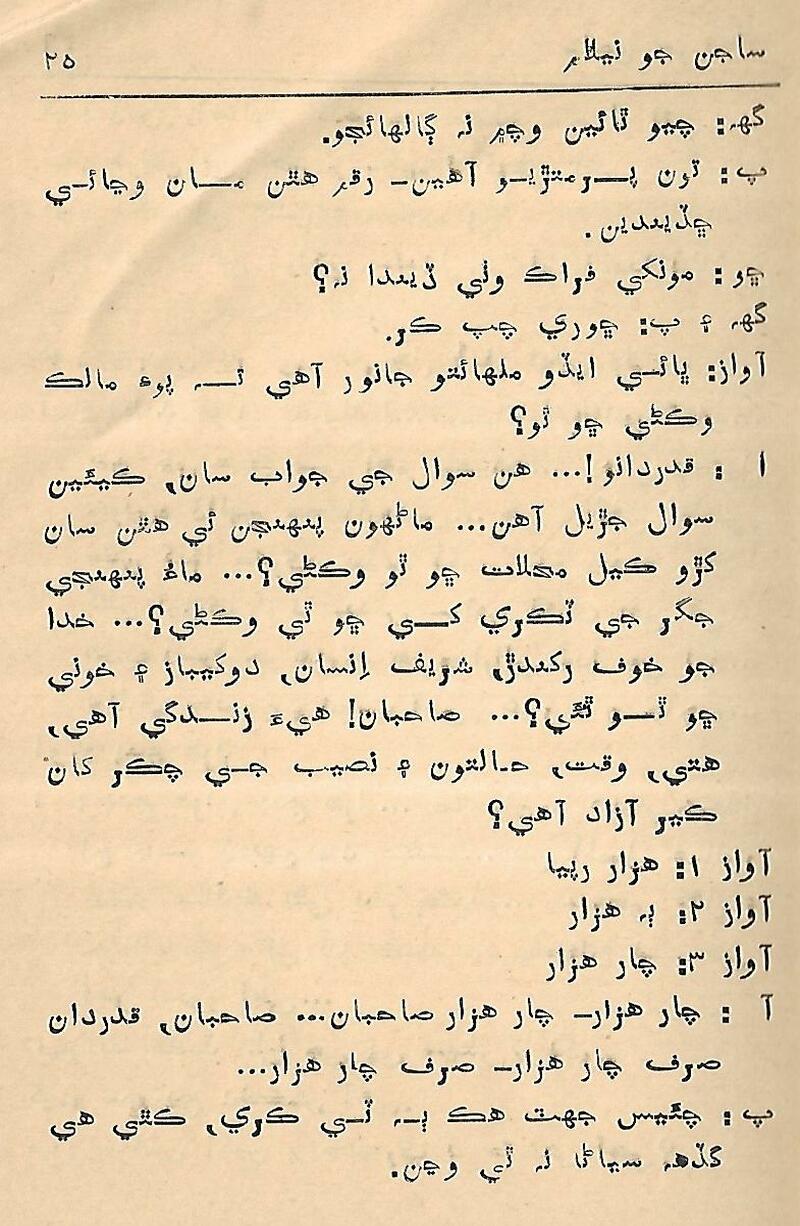 ساجن جو نيلام ٢٥
گهہ: چيو ٿائين وچ۾ نہ ڳالهائجو.
پ: تون پــرمتڙيــو آهين- رقم هٿن مــان وڃائــي
ڇڏيندين.
ڇو: مونکي فراڪ وٺي ڏيندا نہ؟
گهہ ۽ پ: ڇوري چپ ڪر.
آواز: ڀائــي ايڏو ملهائتو جانور آهي تــہ پوءِ مالڪ
وڪڻي ڇو ٿو؟
ا : قدردانو!... هن سوال جي جواب سان، ڪيئين
سوال جڙيل آهن... ماڻهون پنهنجن ئي هٿن سان
کڙو ڪيل محلات ڇو ٿو وڪڻي؟... ماءُ پنهنجي
جگر جي ٽڪري کــي ڇو ٿي وڪڻي؟... خدا
جو خوف رکندڙ، شريف اِنسان، دوکيباز ۽ خوني
ڇو ٿــو ٿئي؟... صاحبان! هيءَ زنــدگي آهي،
هتي، وقت، حـالتون ۽ نصيب جــي چڪر کان
ڪير آزاد آهي؟
آواز ١: هزار رپيا
آواز ٢: ٻہ هزار
آواز ٣: چار هزار
آ : چار هزار- چار هزار صاحبان... صاحبان، قدردان
صرف چار هزار- صرف چار هزار...
پ: چئيس جهٽ هڪ ٻــہ ٽــي ڪري، ڪٿي هي
گڏهہ سياڻا نہ ٿي وڃن.